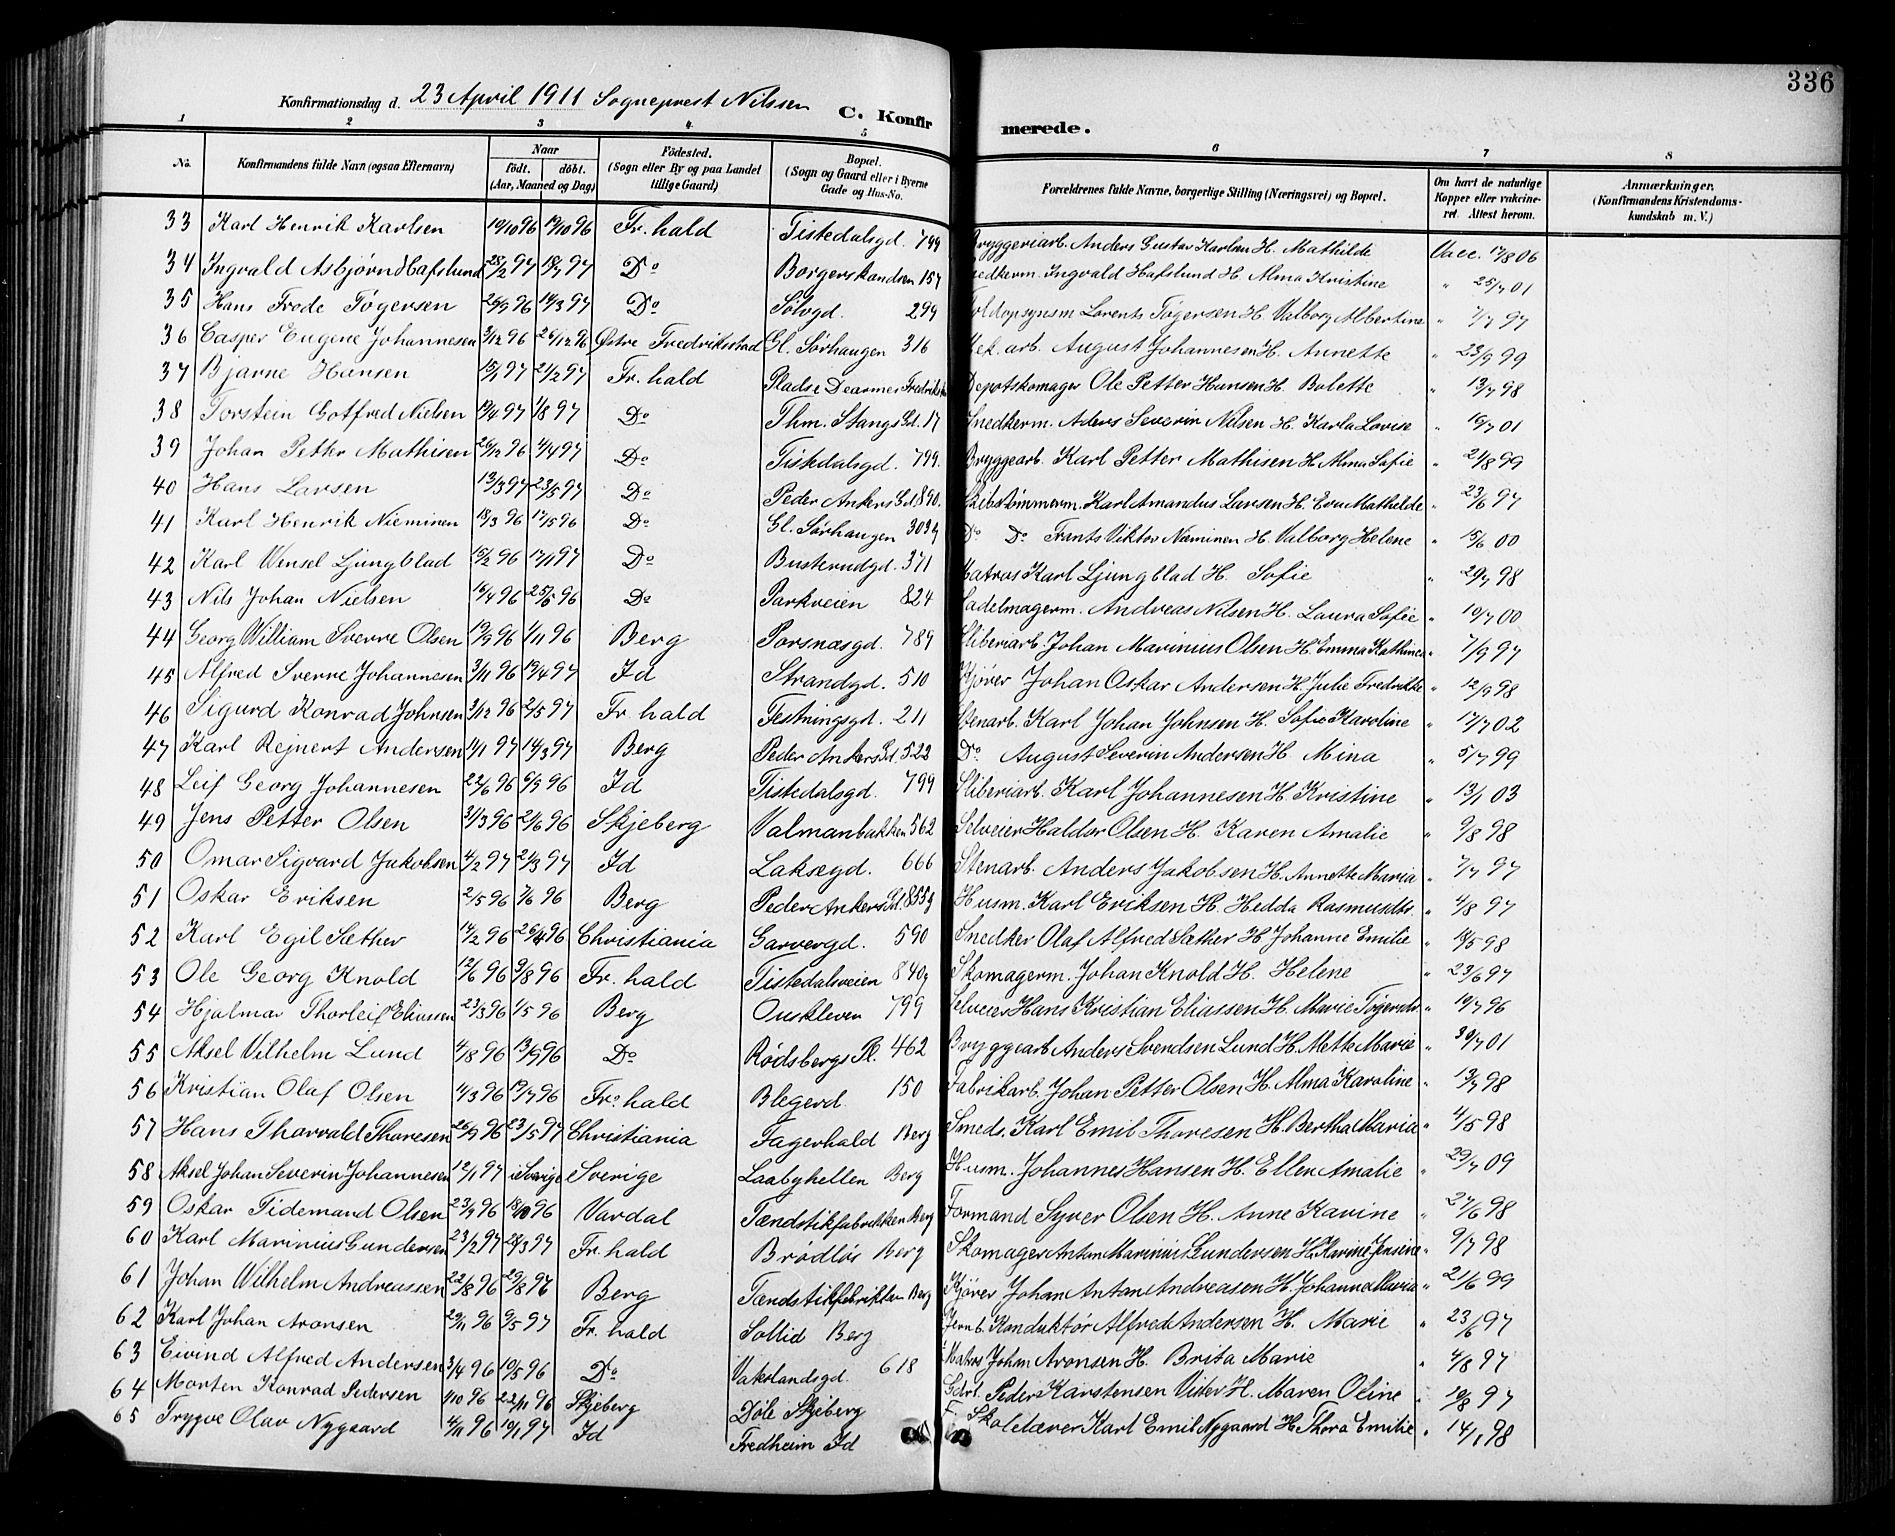 336
Konfirmationsdag d. 23 April 1911 Sogneprest Nilssen C. Konfirmerede.
1 2 3 4 5 6 7 8
No. Konfirmandens fulde Navn (ogsaa Efternavn) Naar født. døbt. (Aar, Maaned og Dag) Födested. (Sogn eller By og paa Landet tillige Gaard) Bopæl. (Sogn og Gaard eller i Byerne Gade og Hus-No. Forældrenes fulde Navne, borgerlige Stilling (Næringsvei) og Bopæl. Om havt de naturlige Kopper eller vakcineret. Attest herom. Anmærkninger. (Konfirmandens Kristendomskundskab m. V.)
33 Karl Henrik Karlsen 19/10 96 19/10 96 Fr. hald Tistedalsgd. 799 Bryggeriarb. Anders Gustav Karlsen H. Mathilde Vacc. 17/8 06
34 Ingvald Asbjørn Hafslund 97 97 Do Borgerskandsen 157 Snedkerm. Ingvald Hafslund H. Alma Kristine " 25/7 01
35 Hans Frode Tøgersen 26/9 96 14/3 97 Do Sølvgd. 299 Toldopsynsm Lorents Tøgersen H. Valborg Albertine " 7/7 97
36 Casper Eugene Johannesen 3/12 96 26/12 96 Østre Fredriksstad Gl. Sørhaugen 316 Mek. arb. August Johannesen H. Annette " 23/9 99
37 Bjarne Hansen 97 21/2 97 Fr. hald Depotskomager Ole Petter Hansen H. Bolette " 13/7 98
38 Torstein Gotfred Nielsen 19/4 97 1/8 97 Do Thm. Stangs Gd. 17 Snedkerm. Aders Severin Nilsen H. Karla Lovise " 19/7 01
39 Johan Petter Mathisen 26/12 96 4/4 97 Do Tistedalsgd. 799. Bryggearb. Karl Petter Mathisen H. Alma Sofie " 21/8 99
40 Hans Larsen 13/3 97 23/5 97 Do Peder Ankers Gd. 890. Skibstømmerm. Karl Amandus Larsen H. Eva Mathilde " 23/6 97
41 Karl Henrik Nieminen 18/3 96 17/5 96 Do Gl. Sørhaugen 303 Do Do Frants Viktor Næminen H Valborg Helene " 15/6 00
42 Karl Wensel Ljungblad 15/2 96 17/1 97 Do Busterudgd. 371 Matros Karl Ljungblad H. Sofie " 29/7 98
43 Nils Johan Nielsen 14/4 96 25/5 96 Do Parkveien 824 Sadelmagerm. Andreas Nilsen H. Laura Sofie " 19/7 00
44 Georg William Sverre Olsen 19/9 96 1/11 96 Berg Porsnæsgd. 789 Sliberiarb. Johan Marinius Olsen H. Emma Kathinca " 7/9 97
45 Alfred Sverre Johannesen 3/11 96 19/4 97 Id Strandgd. 510 Kjører Johan Oskar Andersen H. Julie Fredrikke " 12/9 98
46 Sigurd Konrad Johnsen 3/12 96 2/5 97 Fr. hald Festningsgd. 211 Stenarb. Karl Johan Johnsen H. Sofie Karoline " 17/7 02
47 Karl Rejnert Andersen 11/1 97 14/3 97 Berg Peder Ankers Gd. 522 Do August Severin Andersen H. Mina " 5/7 99
48 Leif Georg Johannesen 22/6 96 6/9 96 Id Tistedalsgd. 799 Sliberiarb. Karl Johannesen H. Kristine " 13/1 03
49 Jens Petter Olsen 31/3 96 21/6 96 Skjeberg Valmanbakken 562 Selveier Haldor Olsen H. Karen Amalie " 9/8 98
50 Omar Sigvard Jakobsen 4/2 97 21/3 97 Id Laksegd. 666 Stenarb. Anders Jakobsen H. Annette Maria " 7/7 97
51 Oskar Eriksen 2/5 96 7/6 96 Berg Peder Ankers Gd. 855 Husm. Karl Eriksen H. Hedda Rasmusdtr. " 4/8 97
52 Karl Egil Sæther 14/2 96 26/4 96 Christiania Garvergd. 590 Snedker Olaf Alfred Sæther H. Johanne Emilie " 18/5 98
53 Ole Georg Knold 12/6 96 9/8 96 Fr. hald Tistedalsveien 840 Skomagerm. Johan Knold H. Helene " 23/6 97
54 Hjalmar Thorleif Eliassen 23/3 96 1/5 96 Berg Ouskleven 799 Selveier Hans Kristian Eliassen H. Marie Tøgersdtr. " 19/7 96
55 Aksel Vilhelm Lund 4/8 96 13/9 96 Do Rødsbergs Pl. 462 Bryggearb Anders Svendsen Lund H. Mette Marie " 30/7 01
56 Kristian Olaf Olsen 4/3 96 19/7 96 Fr. hald Blegerd. 150 Fabrikarb. Johan Petter Olsen H. Alma Karoline " 13/7 98
57 Hans Thorvald Thoresen 26/9 96 23/5 97 Christiania Fagerhald Berg Smeds. Karl Emil Thoresen H. Bertha Maria " 4/5 98
58 Aksel Johan Severin Johannesen 12/1 97 i Sverige Sverige Laabyhellen Berg Husm. Johannes Hansen H. Ellen Amalie " 29/7 09
59 Oskar Tidemand Olsen 23/9 96 18/10 96 Vardal Tændstikfabrikken Berg Formand Syver Olsen H. Anne Karine " 27/6 98
60 Karl Marinius Gundersen 23/2 97 28/3 97 Fr. hald Brødløs Berg Skomager Anton Marinius Gundersen H. Karine Jensine " 9/7 98
61 Johan Wilhelm Andreassen 22/8 96 29/8 97 Berg Tændstikfabrikken Berg Kjører Johan Anton Andreasen H. Johanne Maria " 21/6 99
62 Karl Johan Aronsen 29/11 96 9/5 97 Fr. hald Sollid Berg Jernb. Konduktør Alfred Andersen H. Marie " 23/6 97
63 Eivind Alfred Andersen 3/4 96 10/5 96 Do Vaterlandsgd. 618 Matros Johan Aronsen H. Brita Marie " 4/8 97
64 Morten Konrad Pedersen 4/10 96 22/11 96 Skjeberg Døle Skjeberg Gdrl. Peder Karstensen Vister H. Maren Oline " 19/8 97
65 Trygve Olav Nygaard 4/11 96 10/1 97 Id Fredheim Id F. Skolelærer Karl Emil Nygaard H. Thora Emilie " 14/1 98